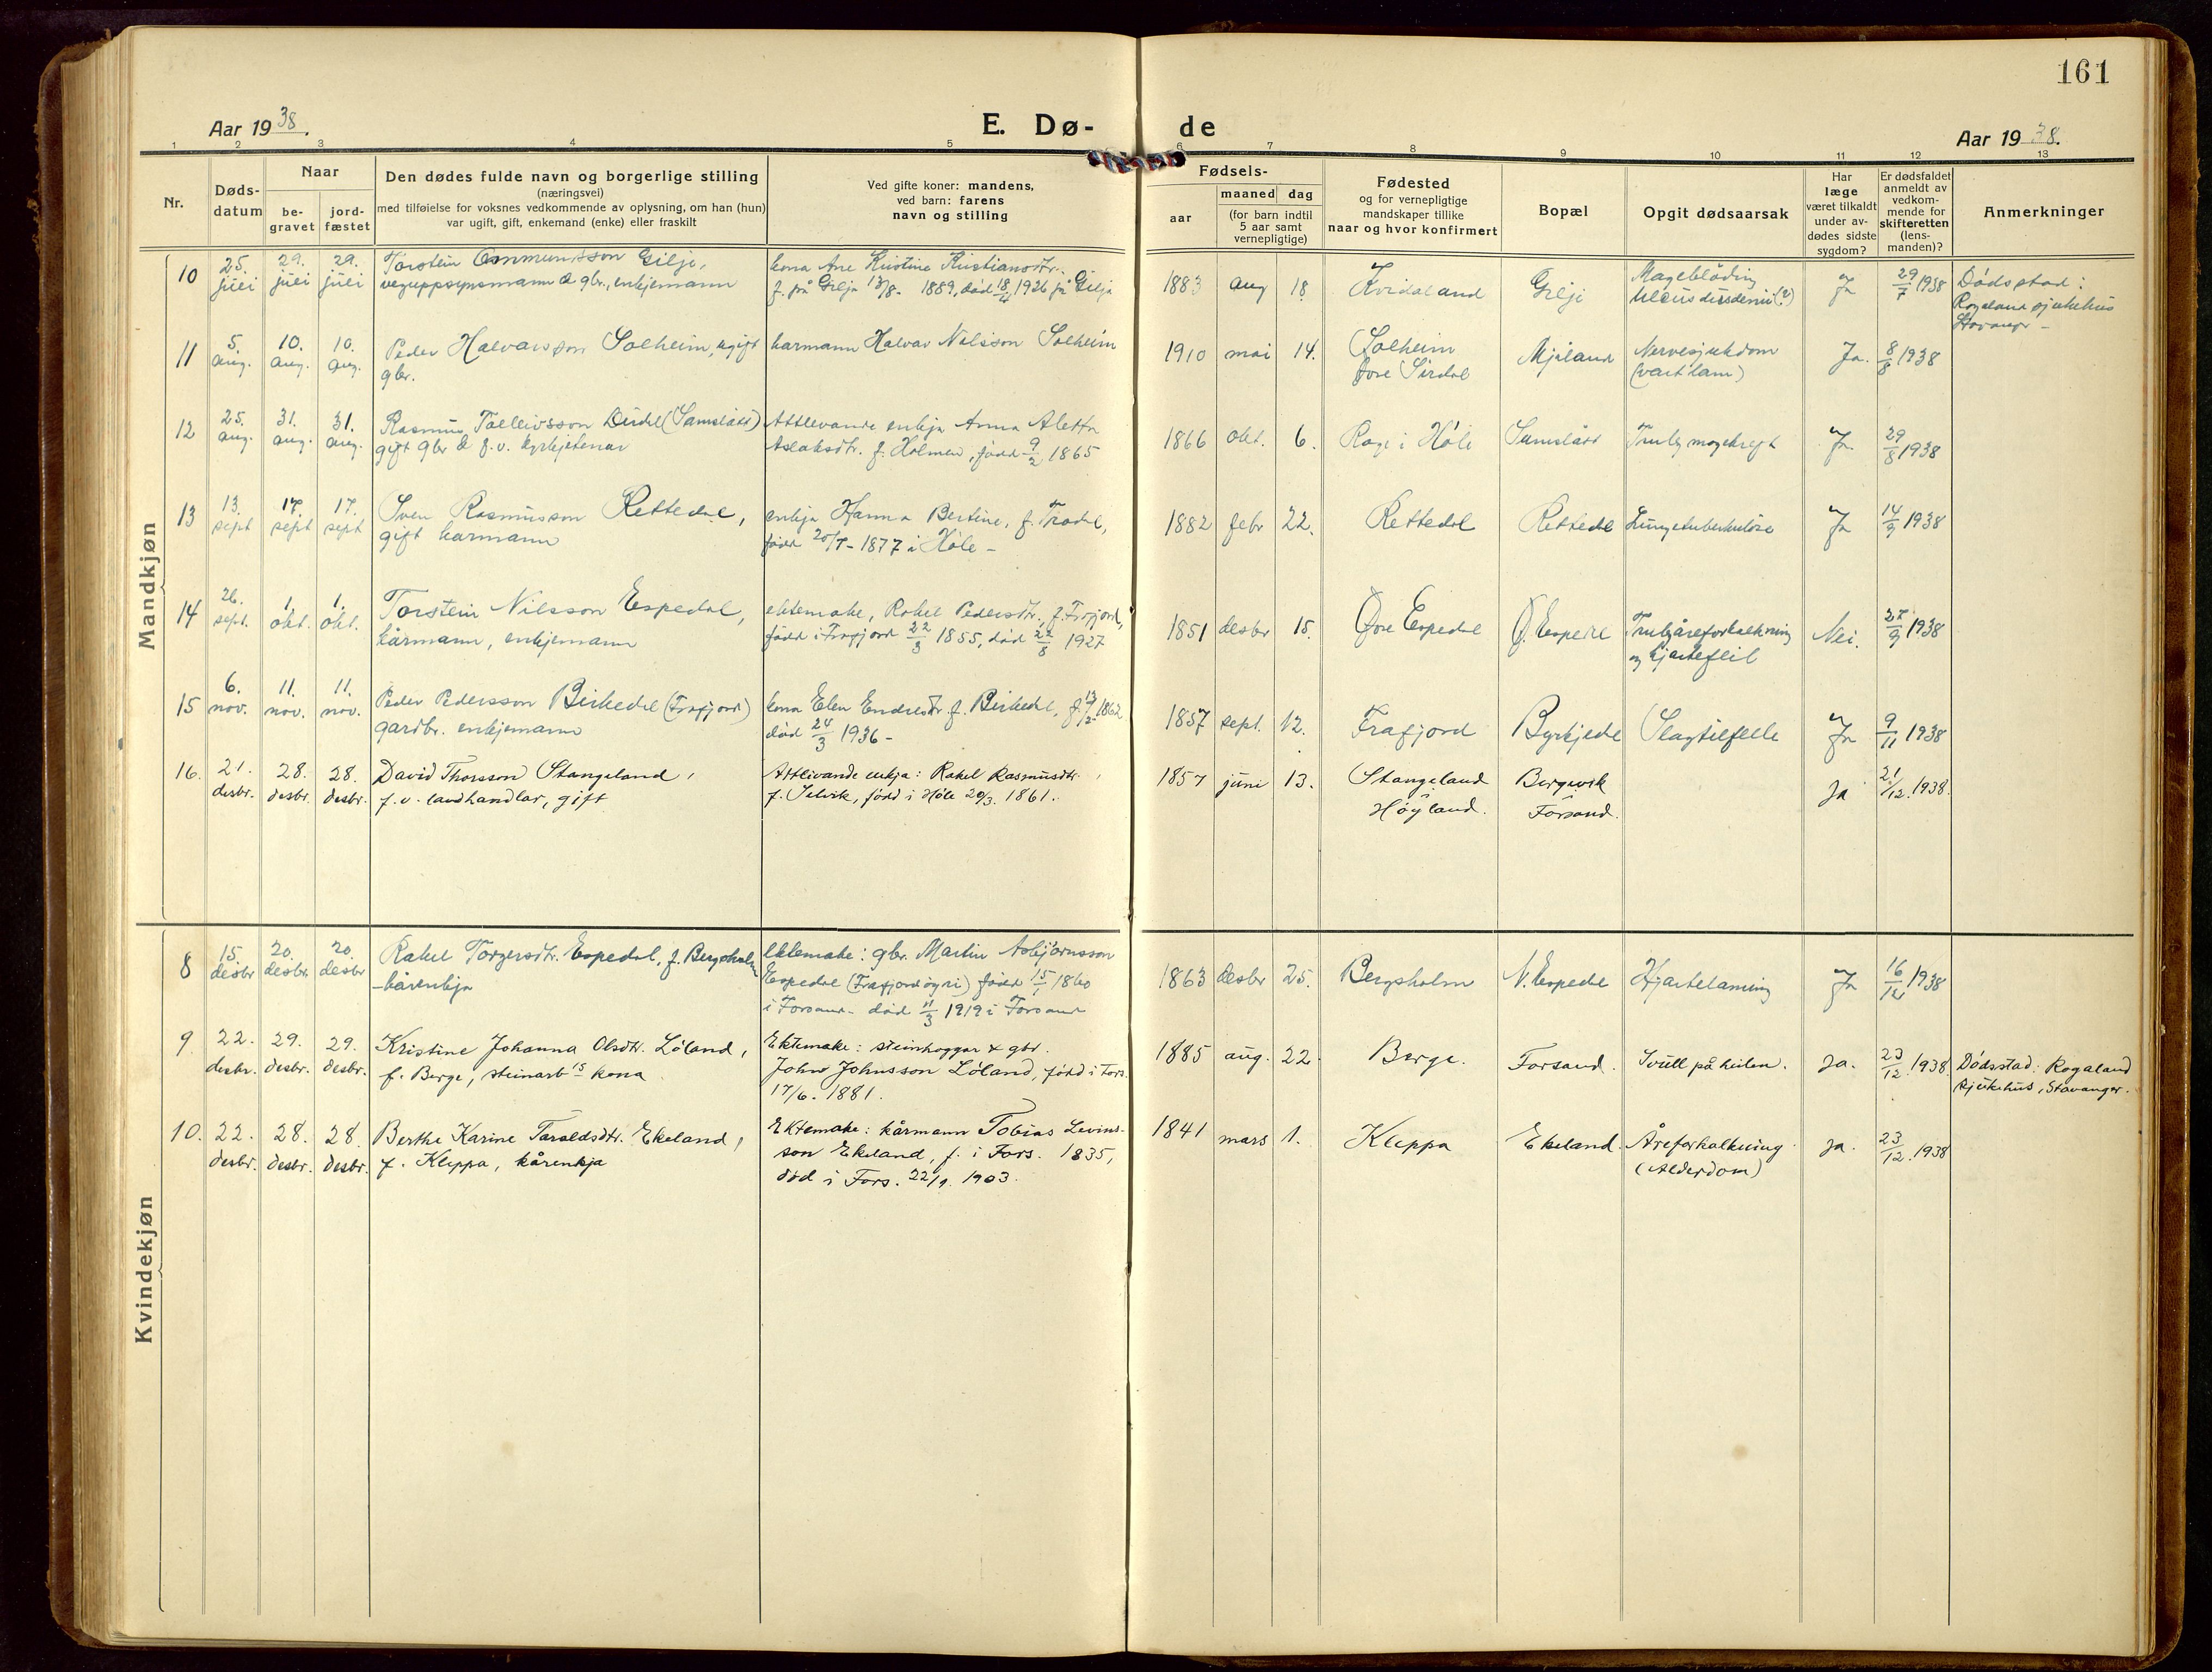 161
Aar 1938.
E. Dø-
de
Aar 1938.
1 2 3 4 5 6 7 8 9 10 11 12 13
Nr.
Døds-
datum
Naar
be-
gravet
jord-
fæstet
Den dødes fulde navn og borgerlige stilling
(næringsvei)
med tilføielse for voksnes vedkommende av oplysning, om han (hun)
var ugift, gift, enkemand (enke) eller fraskilt
Ved gifte koner: mandens,
ved barn: farens
navn og stilling
Fødsels-
aar
maaned dag
(for barn indtil
5 aar samt
vernepligtige)
Fødested
og for vernepligtige
mandskaper tillike
naar og hvor konfirmert
Bopæl
Opgit dødsaarsak
Har
læge
været tilkaldt
under av-
dødes sidste
sygdom?
Er dødsfaldet
anmeldt av
vedkom-
mende for
skifteretten
(lens-
manden)?
Anmerkninger
Mandkjøn
10
25. juli
29. juli
29. juli
Torstein Ommundsson Gilje,
veguppsynsmann & gbr., enkjemann
kona Ane Kristine Kristiansdtr.
f. på Gilja 13/8- 1889, død 1926 på Gilja
1883 aug 18
Kvidaland
Gilji
Mageblöding
Ja
29/7 1938
Dødsstad:
Rogaland sjukehus
Stavanger –
11
5. aug.
10. aug.
10. aug.
Peder Halvarsson Solheim, ugift
gbr.
karmann Halvar Nilsson Solheim
1910 mai 14.
Solheim
Øvre Sirdal
Mjåland
Nervesjukdom
(vart lam)
Ja.
8/8 1938
12
25. aug.
31. aug.
31. aug.
Rasmus Tolleivsson Dirdal (Samslått)
gift gbr & f.v. kyrkjetenar
Attlevande enkja Anna Aletta
Aslaksdtr. f. Holmen, född 9/2 1865
1866 okt. 6.
Rage i Höle
Samslått
Truleg magekreft
Ja
29/8 1938
13
13. sept
17. sept
17. sept
Sven Rasmusson Rettedal,
gift kårmann
enkja Hanna Bertine, f. Tradal,
född 20/7- 1877 i Höle –
1882 febr 22.
Rettedal
Rettedal
Lungetuberkulose
Ja
14/9 1938
14
26. sept.
1. okt.
1. okt.
Torstein Nilsson Espedal,
kårmann, enkjemann
ektemake, Rakel Pedersdtr., f. Frafjord,
född i Frafjord 22/3 1855, död 22/8 1927
1851 desbr 15.
Øvre Espedal
Ø. Espedal
Truleg åreforkalkning
og hjartefeil
Nei.
27/9 1938
15
6. nov.
11. nov.
11. nov.
Peder Pedersson Birkedal (Frafjord)
gardbr. enkjemann
kona Elen Endresdtr. f. Birkedal, f. 1862
död 24/3 1936 –
1857 sept. 12.
Frafjord
Byrkjedal
Slagtilfelle
Ja
9/11 1938
16.
21. desbr.
28. desbr.
28. desbr.
David Thorsson Stangeland,
f. v. landhandlar, gift
Attlivande enkja: Rakel Rasmusdtr.
f. Selvik, född i Höle 20/3. 1861.
1857 juni 13.
Stangeland
i
Høyland.
Bergevik
i
Forsand.
Ja
21/12. 1938.
Kvindekjøn
8
15. desbr
20. desbr.
20. desbr
Rakel Torgersdtr. Espedal, f. Bergsholm
– kårenkja
Ektemake: gbr. Martin Asbjörnsson
Espedal (Frafjordöyri) född 15/1 1860
i Forsand – död 11/3 1919 i Forsand
1863 desbr 25.
Bergsholm
N. Espedal
Hjartelaming
Ja
16/12 1938
9
22. desbr.
29. desbr.
29. desbr.
Kristine Johanna Olsdtr. Löland,
f. Berge, steinarb's kona
Ektemake: steinhoggar & gbr.
John Johnsson Löland, född i Fors.
17/6. 1881.
1885 aug. 22.
Berge.
Forsand.
Svull på heilen.
Ja.
23/12. 1938
Dödsstad: Rogaland
sjukehus, Stavanger.
10.
22. desbr.
28. desbr.
28. desbr.
Berthe Karine Taraldsdtr. Ekeland,
f. Kleppa, kårenkja
Ektemake: kårmann Tobias Levins-
son Ekeland, f. i Fors. 1835,
död i Fors. 22/9. 1903.
1841 mars 1.
Kleppa
Ekeland.
Åreforkalkning.
(Alderdom)
Ja.
23/12. 1938